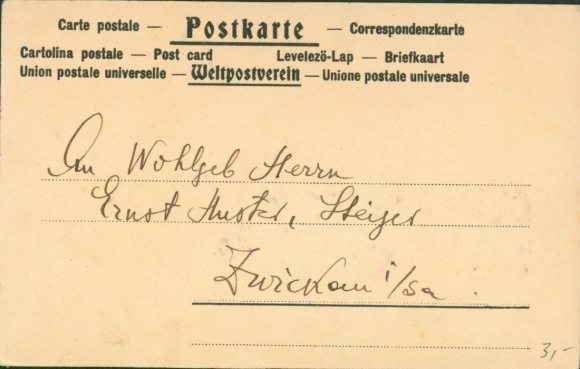 Carte postale — Postkarte — Correspondenzkarte
Cartolina postale — Post card Levelezö-Lap — Briefkaart
Union postale universelle — Weltpostverein — Unione postale universale
An Wohlgeb Herrn
Ernst Muster, Steiger
Zwickau i/Sa.
3,-